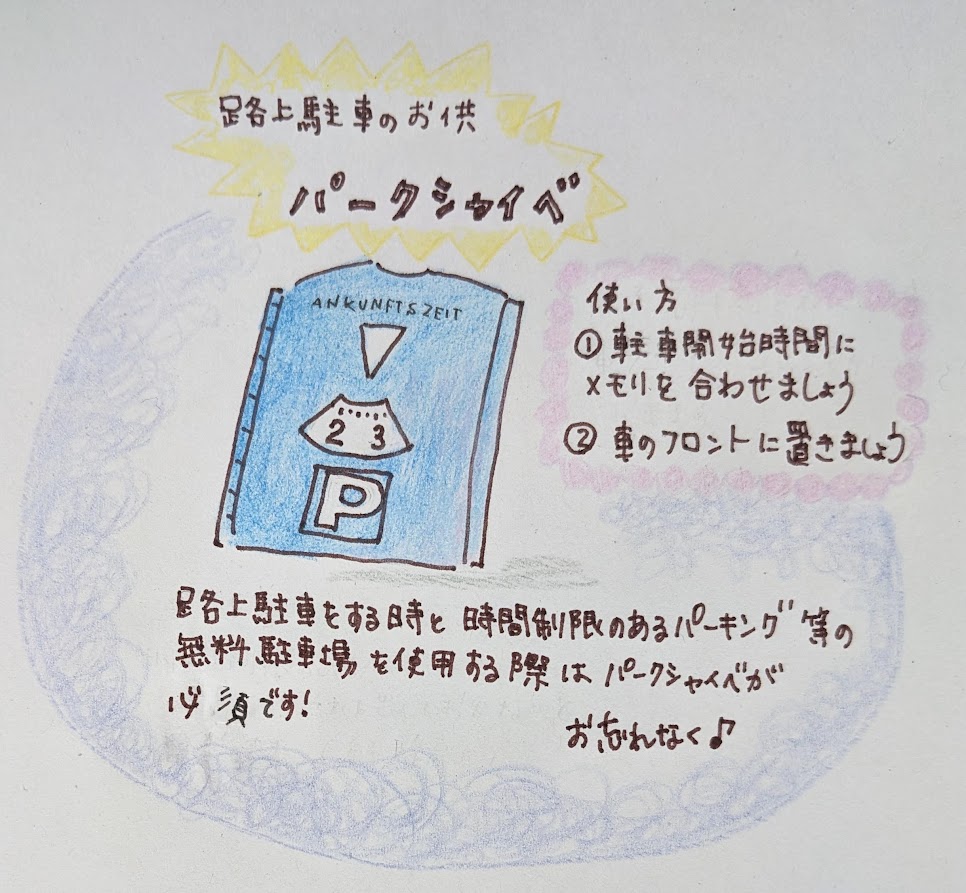 路上駐車のお供
パークシャイベ
ANKUNFTSZEIT
2 3
P
使い方
① 駐車開始時間に
メモリを合わせましょう
② 車のフロントに置きましょう
路上駐車をする時と時間制限のあるパーキング等の
無料駐車場を使用する際はパークシャイベが
必須です!
お忘れなく♪